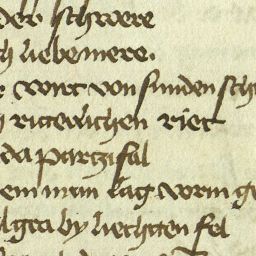 der schwere
ch liebe mere.
wirt von sunden sch
ritterlichen riet
da partzifal
em man lag vorn g
lgra by liechten